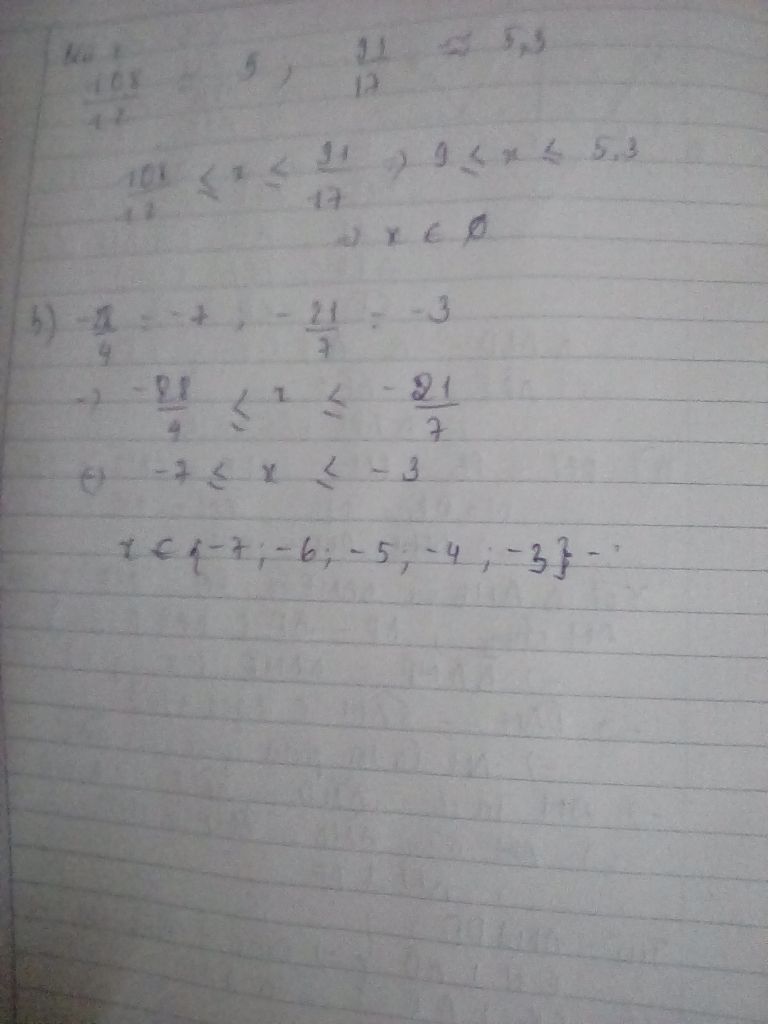 108/12 = 9 ; 91/17 ≈ 5,3
108/12 ≤ x ≤ 91/17 => 9 ≤ x ≤ 5,3
=> x ∈ ∅
b) -28/4 = -7 ; -21/7 = -3
=> -28/4 ≤ x ≤ -21/7
<=> -7 ≤ x ≤ -3
x ∈ {-7 ; -6 ; -5 ; -4 ; -3}